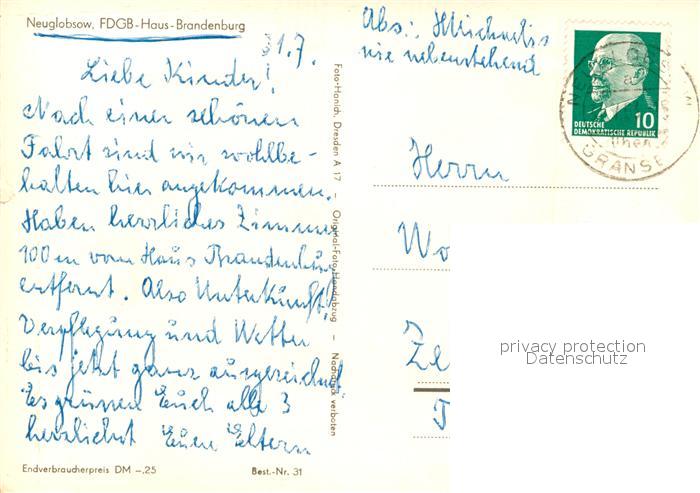 Neuglobsow, FDGB-Haus-Brandenburg
31.7.
Liebe Kinder!
Nach einer schönen
Fahrt sind wir wohlbe-
halten hier angekommen.
Haben herrliches Zimmer
100 m vom Haus Brandenburg
entfernt. Also Unterkunft!
Verpflegung und Wetter
bis jetzt ganz ausgezeichnet.
Es grüssen Euch alle 3
herzlichst Euere Eltern
Endverbraucherpreis DM –,25
Best.-Nr. 31
Foto-Hanich, Dresden A 17 – Original-Foto-Handabzug – Nachdruck verboten
Abs: Michaelis
wie nebenstehend
DEUTSCHE
DEMOKRATISCHE REPUBLIK
10
GRANSEE
Herrn
Wo
Ze
privacy protection
Datenschutz